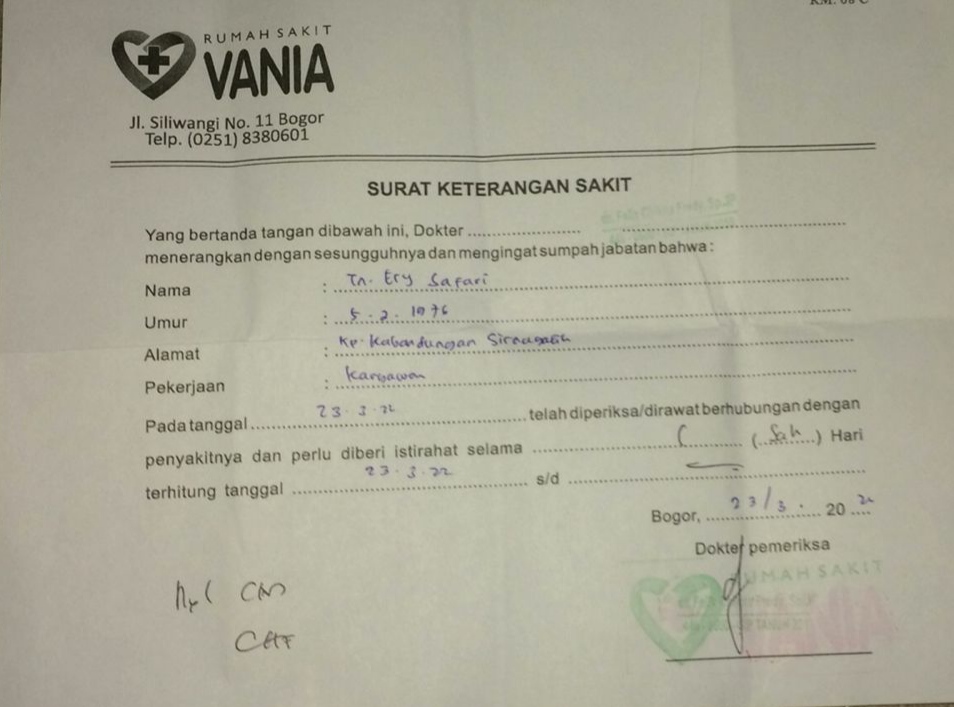 RUMAH SAKIT
VANIA
Jl. Siliwangi No. 11 Bogor
Telp. (0251) 8380601
SURAT KETERANGAN SAKIT
Yang bertanda tangan dibawah ini, Dokter
menerangkan dengan sesungguhnya dan mengingat sumpah jabatan bahwa :
Nama : Tn. Ery Safari
Umur : 5 . 2 . 1976
Alamat : Kp. Kabandungan
Pekerjaan : Karyawan
Pada tanggal 23 . 3 . 22 telah diperiksa/dirawat berhubungan dengan
penyakitnya dan perlu diberi istirahat selama ( ) Hari
terhitung tanggal 23 . 3 . 22 s/d
Bogor, 23/3 . 20 22
Dokter pemeriksa
RUMAH SAKIT
VANIA